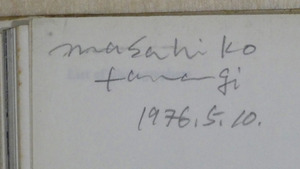 masahiko
tanagi
1976.5.10.